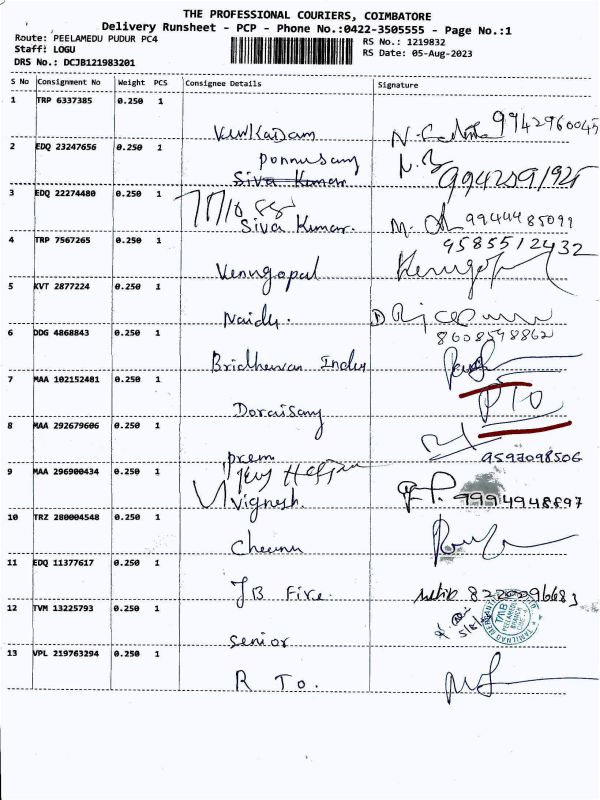 THE PROFESSIONAL COURIERS, COIMBATORE
Delivery Runsheet - PCP - Phone No.:0422-3505555 - Page No.:1
Route: PEELAMEDU PUDUR PC4
RS No.: 1219832
Staff: LOGU
RS Date: 05-Aug-2023
DRS No.: DCJB121983201
S No Consignment No Weight PCS Consignee Details Signature
1 TRP 6337385 0.250 1
Venkadam 9942960045
2 EDQ 23247656 0.250 1
Ponnusamy
Siva Kumar
3 EDQ 22274480 0.250 1
Siva Kumar. 9944485099
4 TRP 7567265 0.250 1 9585512432
Venugopal
5 KVT 2877224 0.250 1
Naidu.
6 DDG 4868843 0.250 1 8608548862
7 MAA 102152481 0.250 1
Doraisamy PTO
8 MAA 292679606 0.250 1
prem 9597098506
9 MAA 296900434 0.250 1
Vignesh. 9994948897
10 TRZ 280004548 0.250 1
11 EDQ 11377617 0.250 1
JB Fire. 8220296683
12 TVM 13225793 0.250 1
TMB
senior
13 VPL 219763294 0.250 1
R To.